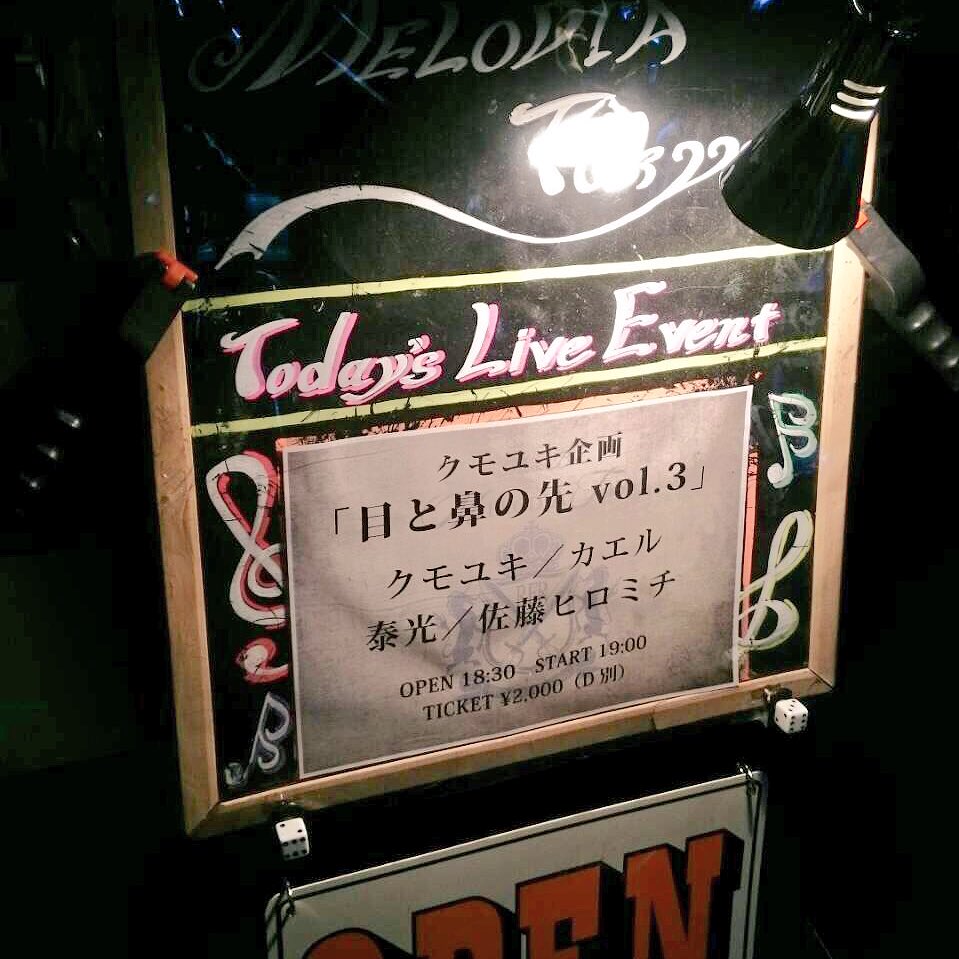 MELODIA
Today's Live Event
クモユキ企画
「目と鼻の先 vol.3」
クモユキ／カエル
泰光／佐藤ヒロミチ
OPEN 18:30 START 19:00
TICKET ¥2,000（D別）
OPEN